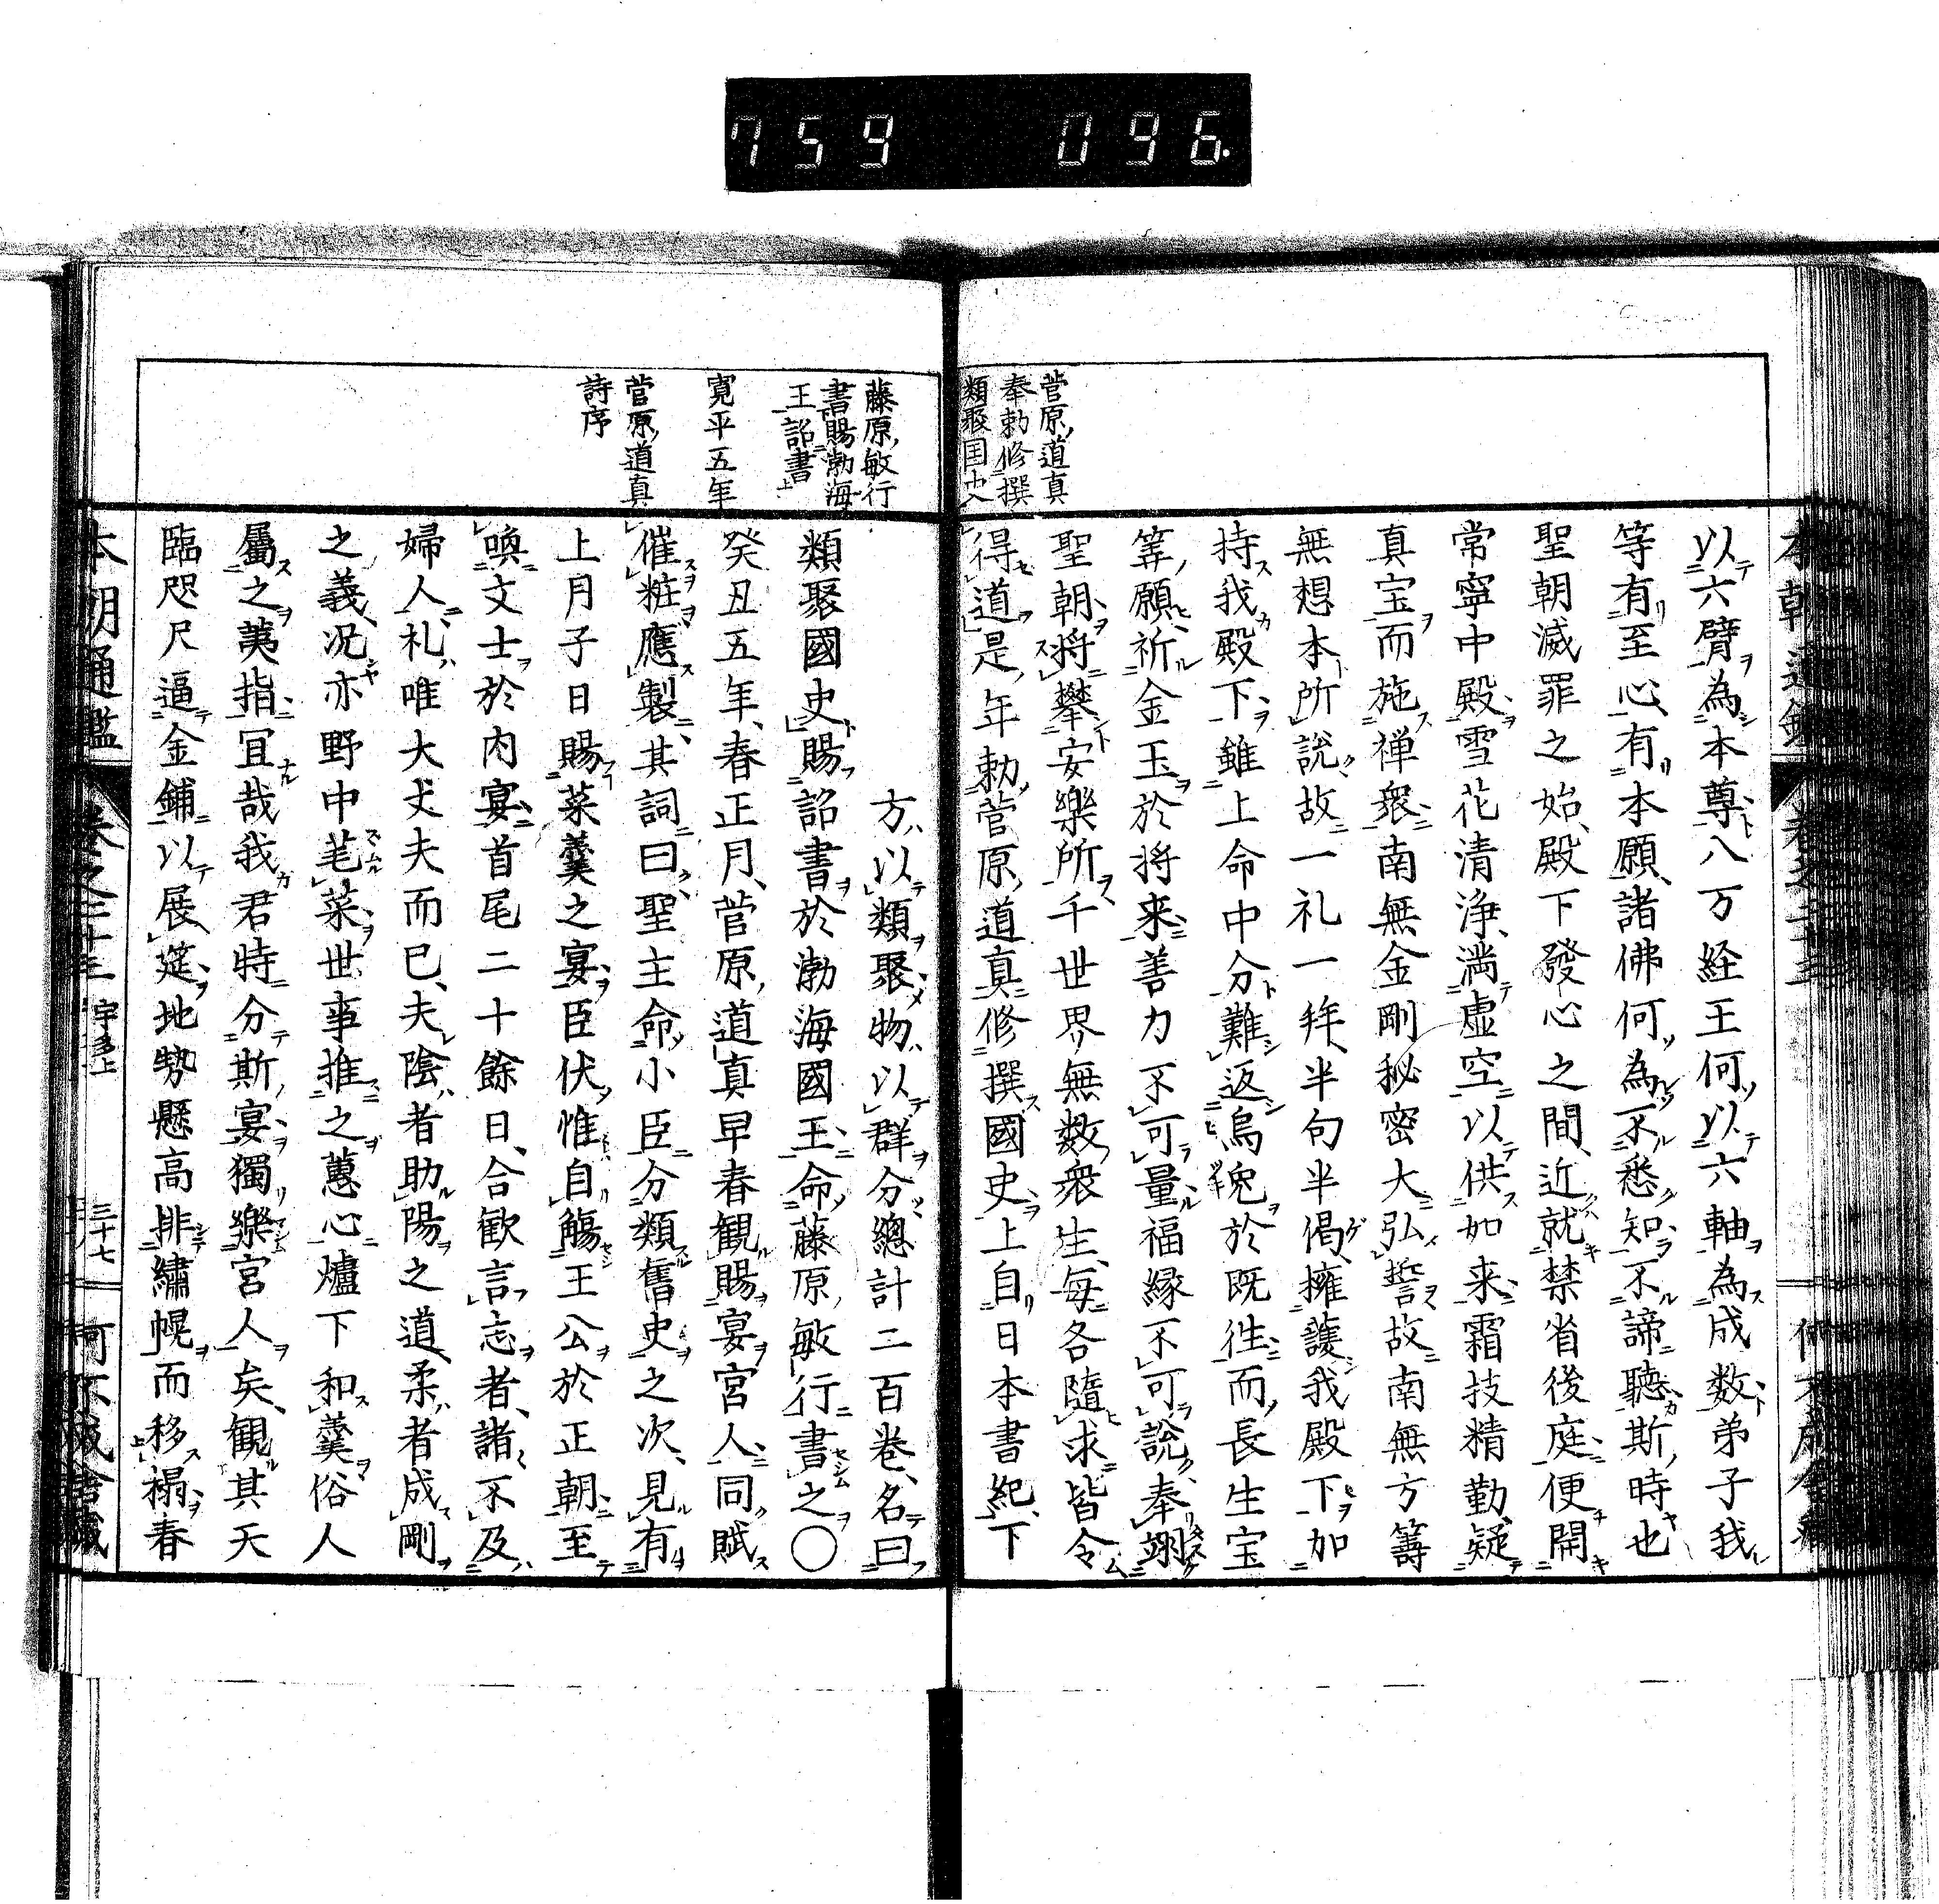 759 096.
菅原道真
奉勅修撰
類聚国史
以六臂為本尊八万経王何以六軸為成数弟子我
等有至心有本願諸佛何為不悉知不諦聴斯時也
聖朝滅罪之始殿下發心之間近就禁省後庭便開
常寧中殿雪花清浄満虚空以供如来霜技精勤疑
真宝而施禅衆南無金剛秘密大弘誓故南無方籌
無想本所説故一礼一拜半句半偈擁護我殿下加
持我殿下雖上命中分難返烏兔於既徃而長生宝
筭願祈金玉於将来善力不可量福縁不可説奉翊
聖朝将攀安樂所千世界無数衆生毎各隨求皆令
得道是年勅菅原道真修撰國史上自日本書紀下
藤原敏行
書賜渤海
王詔書
寛平五年
菅原道真
詩序
方以類聚物以群分總計二百巻名曰
類聚國史賜詔書於渤海國王命藤原敏行書之〇
癸丑五年春正月菅原道真早春観賜宴宮人同賦
催粧應製其詞曰聖主命小臣分類舊史之次見有
上月子日賜菜羹之宴臣伏惟自觴王公於正朝至
喚文士於内宴首尾二十餘日合歓言志者諸不及
婦人礼唯大丈夫而已夫陰者助陽之道柔者成剛
之義况亦野中芼菜世事推之蕙心爐下和羹俗人
屬之荑指冝哉我君時分斯宴獨樂宮人矣観其天
臨咫尺逼金鋪以展筵地勢懸高排繡幌而移榻春
本朝通鑑 巻之二十三 宇多上 三十七